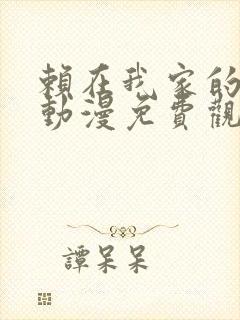 賴在我家的
動漫免費觀
譚呆呆